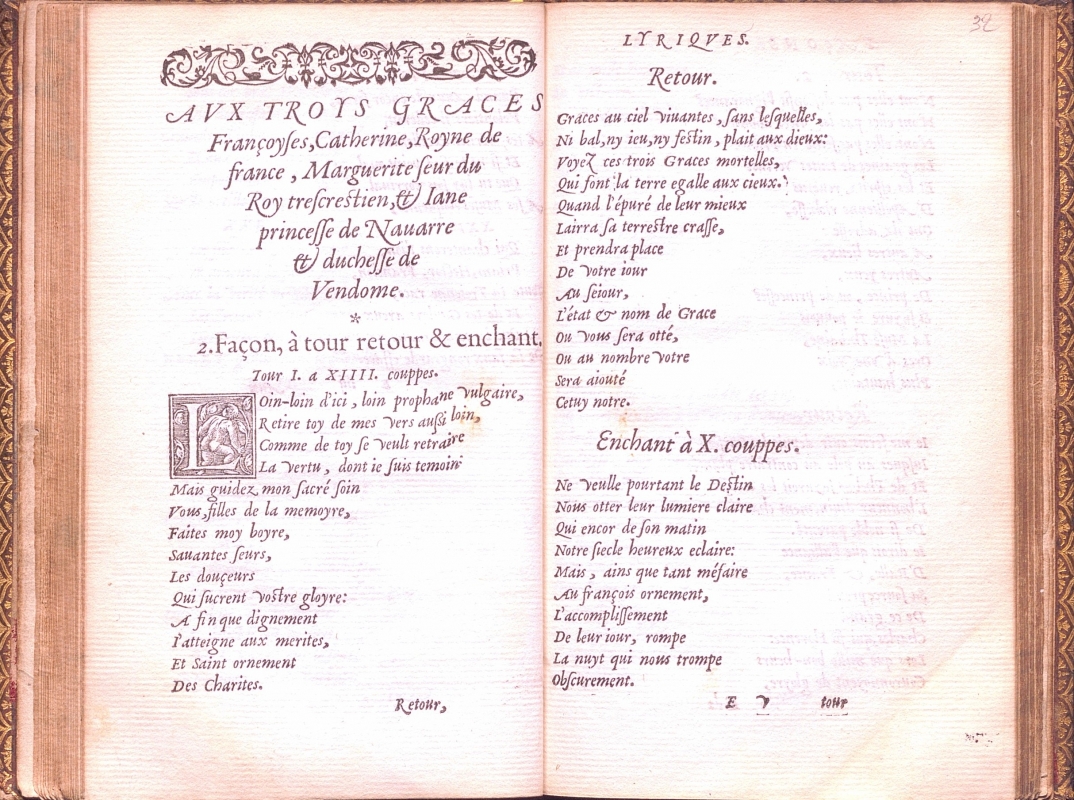 AVX TROYS GRACES
Françoyſes, Catherine, Royne de
france, Marguerite ſeur du
Roy treſcreſtien, & Iane
princeſſe de Nauarre
& ducheſſe de
Vendome.
*
2. Façon, à tour retour & enchant.
Tour I. a XIIII. couppes.
LOin-loin d'ici, loin prophane vulgaire,
Retire toy de mes vers auſſi loin,
Comme de toy ſe veult retraire
La vertu, dont ie ſuis temoin
Mais guidez mon ſacré ſoin
Vous, filles de la memoyre,
Faites moy boyre,
Sauantes ſeurs,
Les douçeurs
Qui ſucrent voſtre gloyre:
A fin que dignement
I'atteigne aux merites,
Et Saint ornement
Des Charites.
Retour,
32
LYRIQVES.
Retour.
Graces au ciel viuantes, ſans leſquelles,
Ni bal, ny ieu, ny feſtin, plait aux dieux:
Voyez ces trois Graces mortelles,
Qui font la terre egalle aux cieux.
Quand l'épuré de leur mieux
Lairra ſa terreſtre craſſe,
Et prendra place
De votre iour
Au ſéiour,
L'état & nom de Grace
Ou vous ſera otté,
Ou au nombre votre
Sera aiouté
Cetuy notre.
Enchant à X. couppes.
Ne veulle pourtant le Deſtin
Nous otter leur lumiere claire
Qui encor de ſon matin
Notre ſiecle heureux eclaire:
Mais, ains que tant méfaire
Au françois ornement,
L'accompliſſement
De leur iour, rompe
La nuyt qui nous trompe
Obſcurement.
E v tour